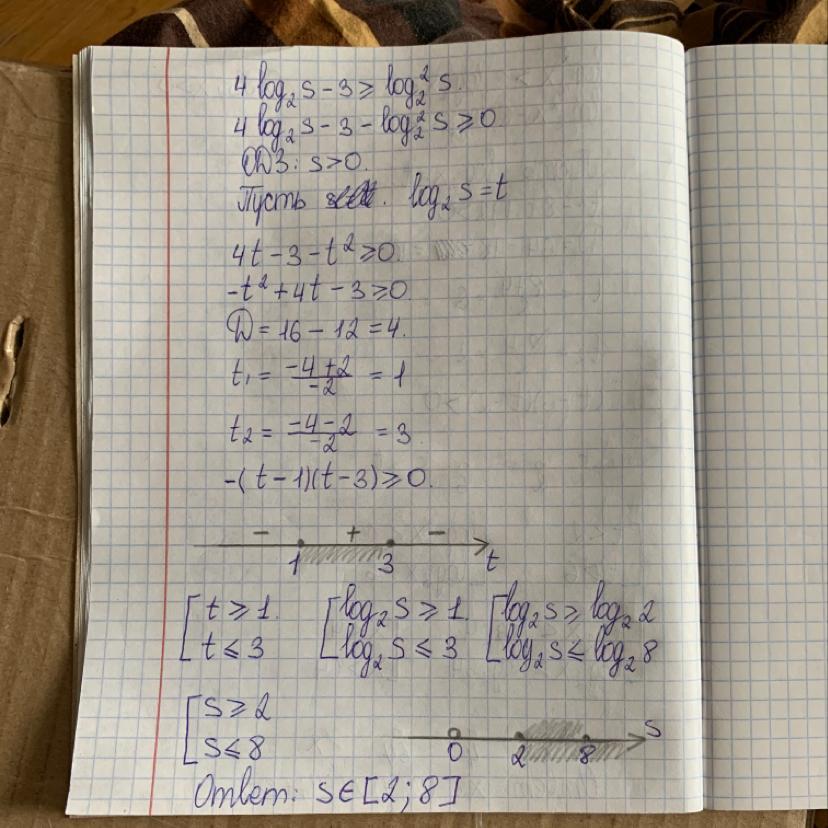 4 log₂ s - 3 ≥ log₂² s.
4 log₂ s - 3 - log₂² s ≥ 0.
ОДЗ: s > 0.
Пусть log₂ s = t
4t - 3 - t² ≥ 0.
-t² + 4t - 3 ≥ 0.
D = 16 - 12 = 4.
t₁ = (-4 + 2)/(-2) = 1
t₂ = (-4 - 2)/(-2) = 3
-(t - 1)(t - 3) ≥ 0.
- + -
1 3 t
[t ≥ 1. [log₂ s ≥ 1. [log₂ s ≥ log₂ 2
[t ≤ 3 [log₂ s ≤ 3 [log₂ s ≤ log₂ 8
[s ≥ 2
[s ≤ 8
0 2 8 s
Ответ: s ∈ [2; 8]